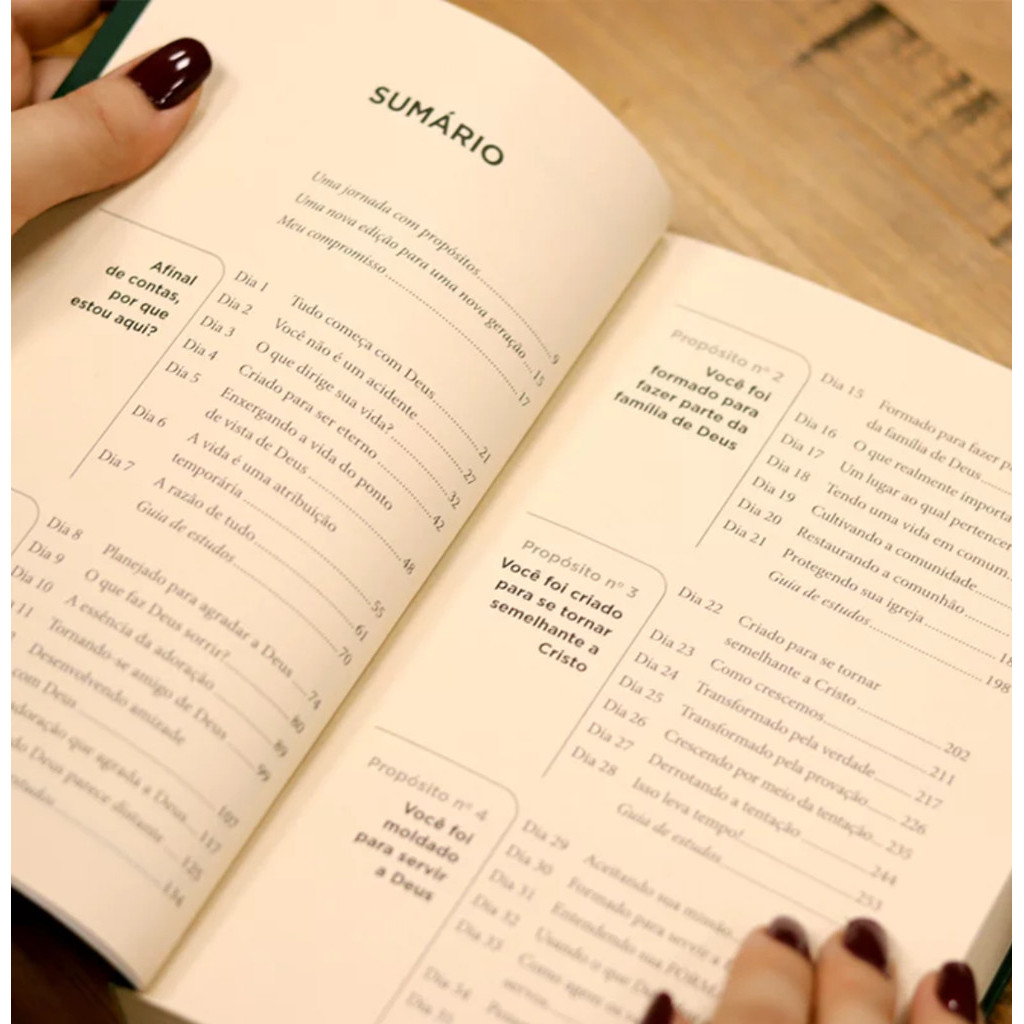 SUMÁRIO
Uma jornada com propósitos 9
Uma nova edição para uma nova geração 15
Meu compromisso 17
Afinal
de contas,
por que
estou aqui?
Dia 1 Tudo começa com Deus 21
Dia 2 Você não é um acidente 27
Dia 3 O que dirige sua vida? 32
Dia 4 Criado para ser eterno 42
Dia 5 Enxergando a vida do ponto
de vista de Deus 48
Dia 6 A vida é uma atribuição
temporária 55
Dia 7 A razão de tudo 61
Guia de estudos 70
Dia 8 Planejado para agradar a Deus 74
Dia 9 O que faz Deus sorrir? 80
Dia 10 A essência da adoração 89
11 Tornando-se amigo de Deus 99
Desenvolvendo amizade
com Deus 107
adoração que agrada a Deus 117
Deus parece distante 125
134
Propósito nº 2
Você foi
formado para
fazer parte da
família de Deus
Dia 15 Formado para fazer
da família de Deus
Dia 16 O que realmente importa
Dia 17 Um lugar ao qual pertencer
Dia 18 Tendo uma vida em comum
Dia 19 Cultivando a comunidade
Dia 20 Restaurando a comunhão
Dia 21 Protegendo sua igreja
Guia de estudos 198
Propósito nº 3
Você foi criado
para se tornar
semelhante a
Cristo
Dia 22 Criado para se tornar
semelhante a Cristo 202
Dia 23 Como crescemos 211
Dia 24 Transformado pela verdade 217
Dia 25 Transformado pela provação 226
Dia 26 Crescendo por meio da tentação 235
Dia 27 Derrotando a tentação 244
Dia 28 Isso leva tempo! 253
Guia de estudos
Propósito nº 4
Você foi
moldado
para servir
a Deus
Dia 29 Aceitando sua missão
Dia 30 Formado para servir a
Dia 31 Entendendo sua FORMA
Dia 32 Usando o que
Dia 33 Como agem os
Dia 34
Dia 35